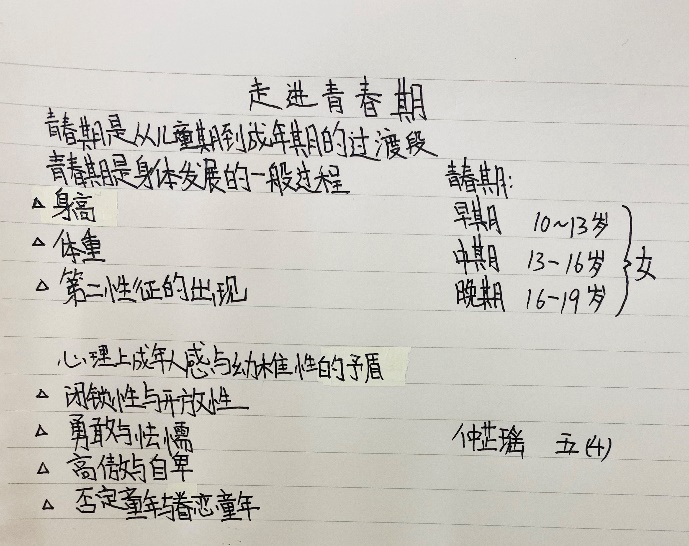 走进青春期
青春期是从儿童期到成年期的过渡段
青春期是身体发展的一般过程
△ 身高
△ 体重
△ 第二性征的出现
青春期:
早期 10~13岁
中期 13-16岁
晚期 16-19岁
女
心理上成年人感与幼稚性的矛盾
△ 闭锁性与开放性
△ 勇敢与怯懦
△ 高傲与自卑
△ 否定童年与眷恋童年
仲芷瑶 五(4)